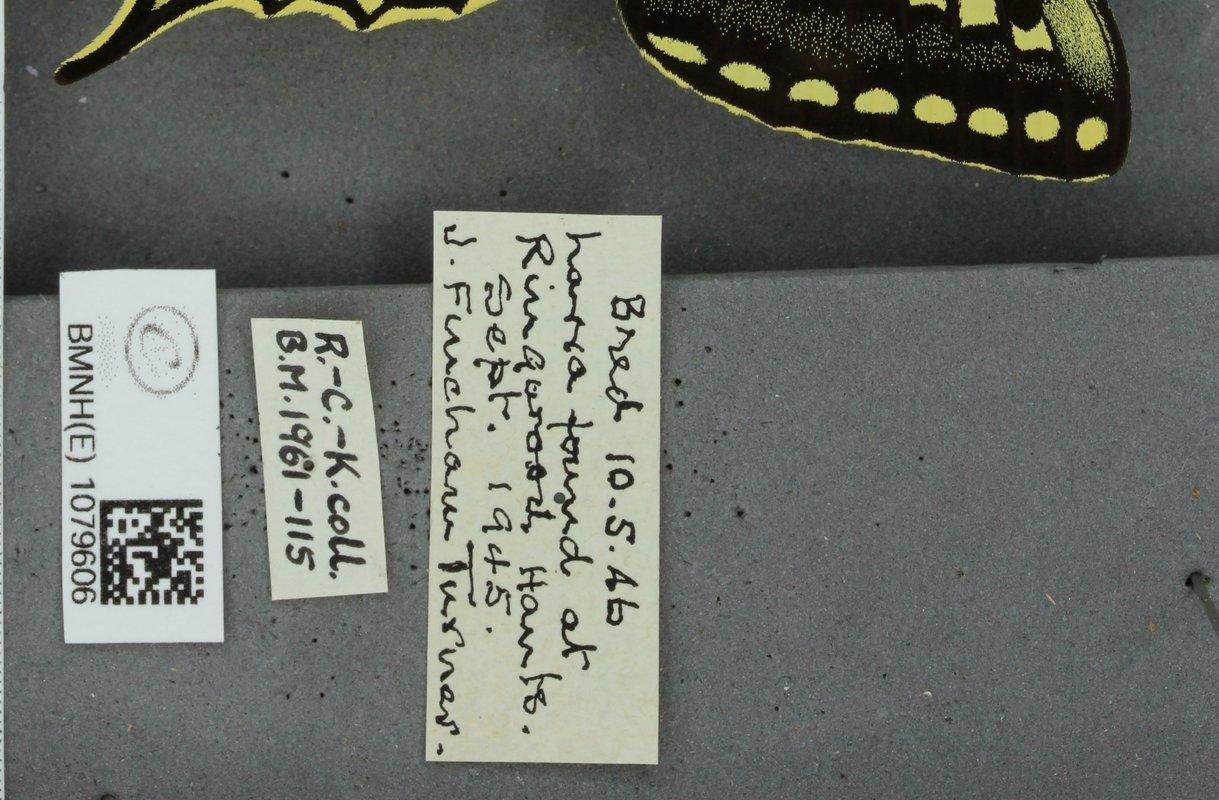 Bred 10.5.46
larva found at
Ringwood, Hants.
Sept. 1945.
J. Fincham Turner.
R.-C.-K. coll.
B.M. 1961-115
BMNH(E) 1079606